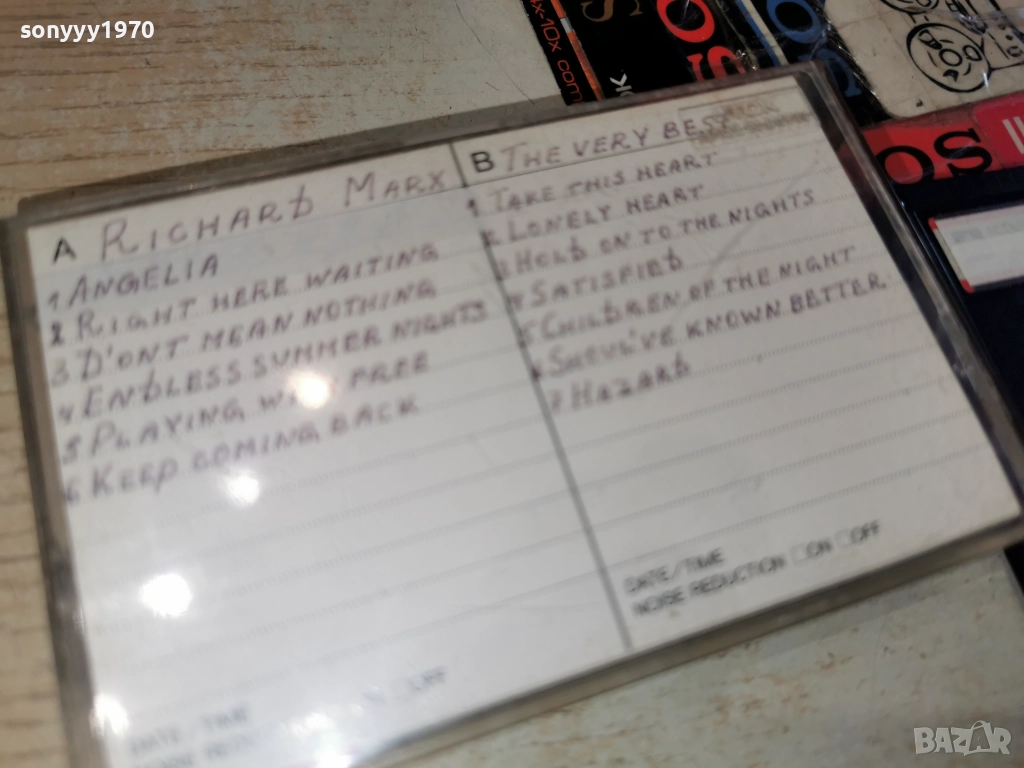 sonyyy1970
x-10x com
OS
OS
A RICHARD MARX
1 ANGELIA
2 RIGHT HERE WAITING
3 D'ONT MEAN NOTHING
4 ENDLESS SUMMER NIGHTS
5 PLAYING FREE
6 KEEP COMING BACK
B THE VERY BEST
1 TAKE THIS HEART
2 LONELY HEART
3 HOLD ON TO THE NIGHTS
4 SATISFIED
5 CHILDREN OF THE NIGHT
6 SHOUL'VE KNOWN BETTER
7 HAZARD
DATE/TIME
NOISE REDUCTION ON OFF
DATE/TIME
OFF
BAZAR